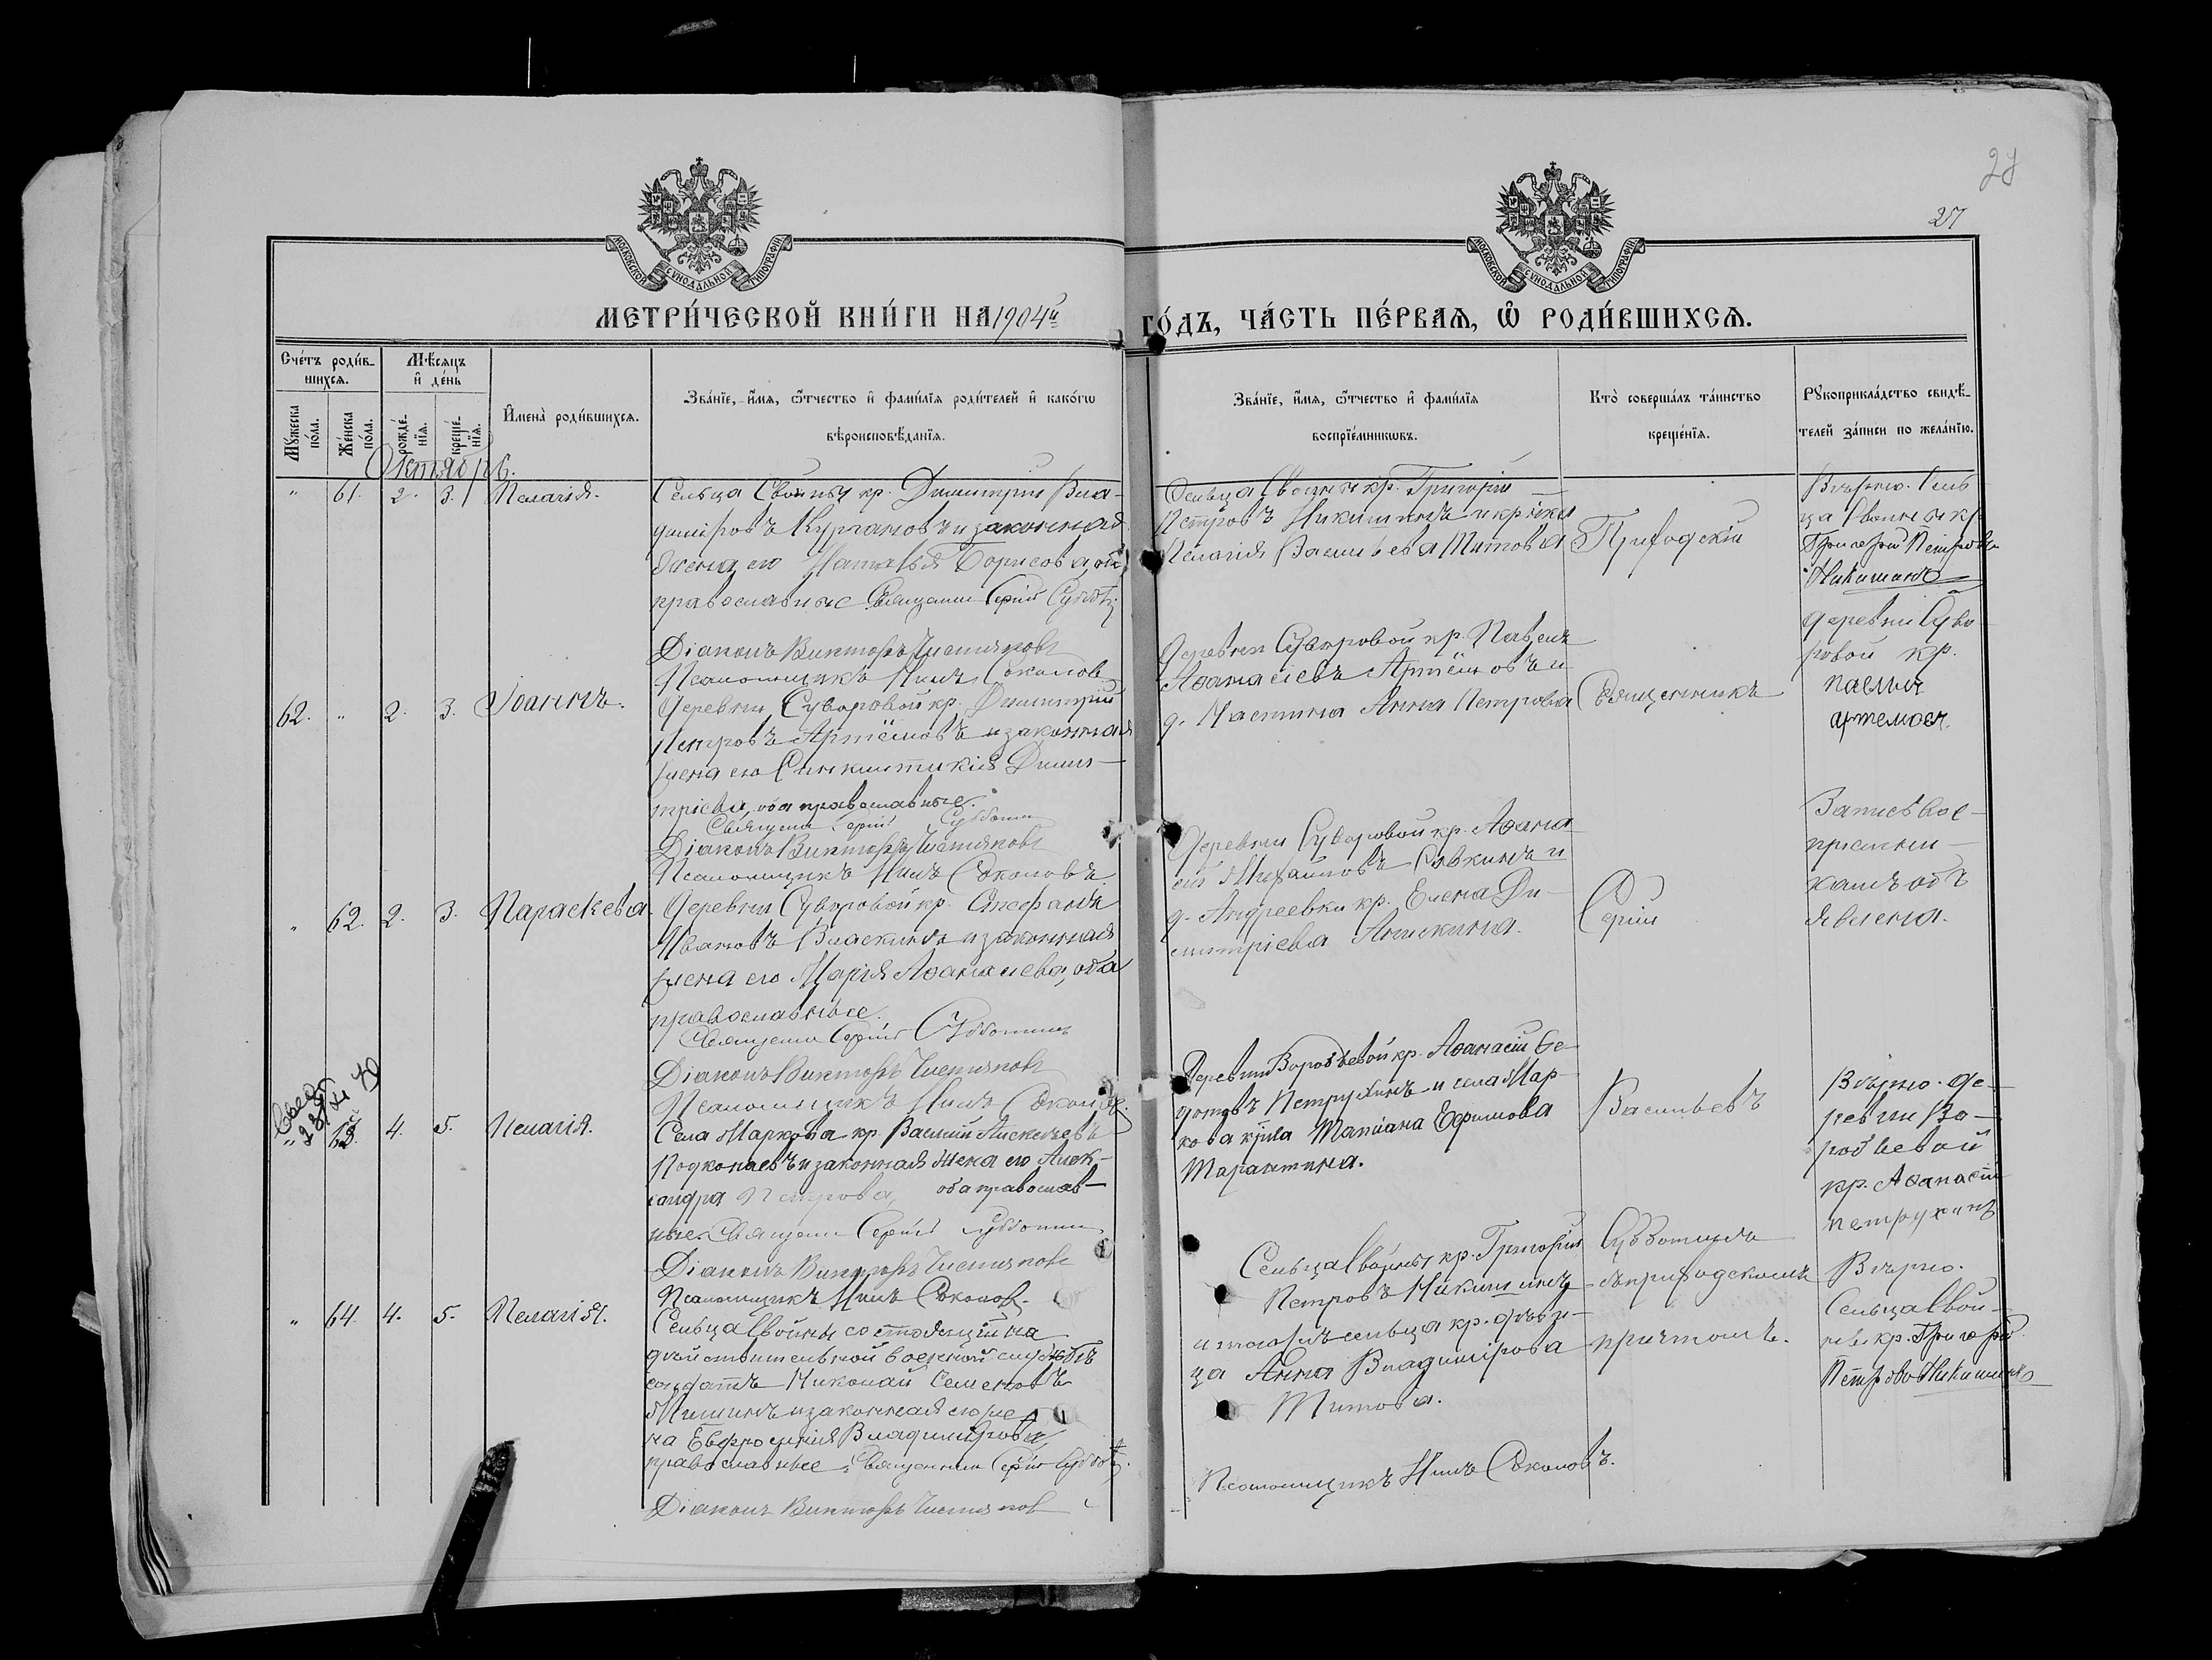 28
27
МОСКОВСКОЙ СѴНОДАЛЬНОЙ ТИПОГРАФІИ
МОСКОВСКОЙ СѴНОДАЛЬНОЙ ТИПОГРАФІИ
МЕТРИ́ЧЕСКОЙ КНИ́ГИ НА 1904й ГО́ДЪ, ЧА́СТЬ ПЕ́РВАѦ, Ѡ҆ РОДИ́ВШИХСѦ.
Сче́тъ роди́в-
шихсѧ.
Мꙋжеска по́ла.
Же́нска по́ла.
Мѣ́сѧцъ
и҆ де́нь
рожде́-
нїѧ.
креще́-
нїѧ.
И҆мена̀ роди́вшихсѧ.
Зва́нїе, и҆́мѧ, ѻ҆́тчество и҆ фами́лїѧ роди́телей и҆ како́гѡ
вѣроисповѣ́данїѧ.
Зва́нїе, и҆́мѧ, ѻ҆́тчество и҆ фами́лїѧ
воспрїе́мникѡвъ.
Кто̀ соверша́лъ та́инство
креще́нїѧ.
Рꙋкоприкла́дство свидѣ́-
телей за́писи по жела́нїю.
Октябрь.
" 61. 2. 3. Пелагія.
Сельца Свойны кр. Димитрій Вла-
диміровъ Кургановъ и законная
жена его Наталья Борисова, оба
православные Священ Сергій Суббот
Діаконъ Викторъ Чистяковъ
Псаломщикъ Нилъ Соколовъ
Сельца Свойны кр. Григорій
Петровъ Никишинъ и кр-нка
Пелагія Васильева Титова
Приходскій
Вѣрно. Сель
ца Свойны кр.
Григорій Петровъ
Никишинъ
62. " 2. 3. Іоаннъ.
Деревни Суворовой кр. Димитрій
Петровъ Артёмовъ и законная
жена его Синклитикія Дими-
тріева, оба православные.
Священ Сергій Субботин
Діаконъ Викторъ Чистяковъ
Псаломщикъ Нилъ Соколовъ
Деревни Суворовой кр. Павелъ
Аѳанасіевъ Артёмовъ и
д. Частина Анна Петрова
Священникъ
деревни Суво
ровой кр.
Павелъ
Артемовъ
" 62. 2. 3. Параскева.
Деревни Суворовой кр. Стефанъ
Ивановъ Власкинъ и законная
жена его Марія Аѳанасьева, оба
православные.
Священ Сергій Субботинъ
Діаконъ Викторъ Чистяковъ
Псаломщикъ Нилъ Соколов
Деревни Суворовой кр. Аѳана
сій Михаиловъ Савкинъ и
д. Андреевки кр. Елена Ди
митріева Аникина.
Сергій
Запись вос-
пріемни-
камъ объ
явлена.
" 63. 4. 5. Пелагія.
Села Маркова кр. Василій Алексѣевъ
Подкопаевъ и законная жена его Алек-
сандра Петрова, оба православ-
ные. Священ Сергій Субботин
Діаконъ Викторъ Чистяковъ
Псаломщикъ Нилъ Соколов.
Деревни Воробьевой кр. Аѳанасій Ѳе-
дотовъ Петрухинъ и села Мар-
кова кр-нка Татіана Ефимова
Тарантина.
Васильевъ
Вѣрно. де-
ревни Во-
робьевой
кр. Аѳанасій
Петрухинъ
" 64. 4. 5. Пелагія.
Сельца Свойны состоящій на
дѣйствительной военной службѣ
солдатъ Николай Семеновъ
Мишинъ и законная его же
на Евфросинія Владимірова,
православные. Священник Сергій Суббот
Діаконъ Викторъ Чистяков
Сельца Свойны кр. Григорій
Петровъ Никишинъ
и тогожъ сельца кр. дѣви-
ца Анна Владимірова
Титова.
Псаломщикъ Нилъ Соколовъ.
Субботинъ
съ приходскимъ
причтомъ.
Вѣрно.
Сельца Свой-
ны кр. Григорій
Петровъ Никишинъ